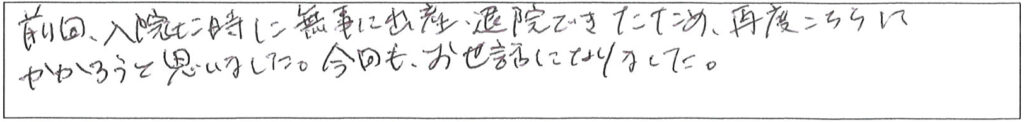 前回、入院した時に無事に出産、退院できたため、再度こちらに
かかろうと思いました。今回も、お世話になりました。